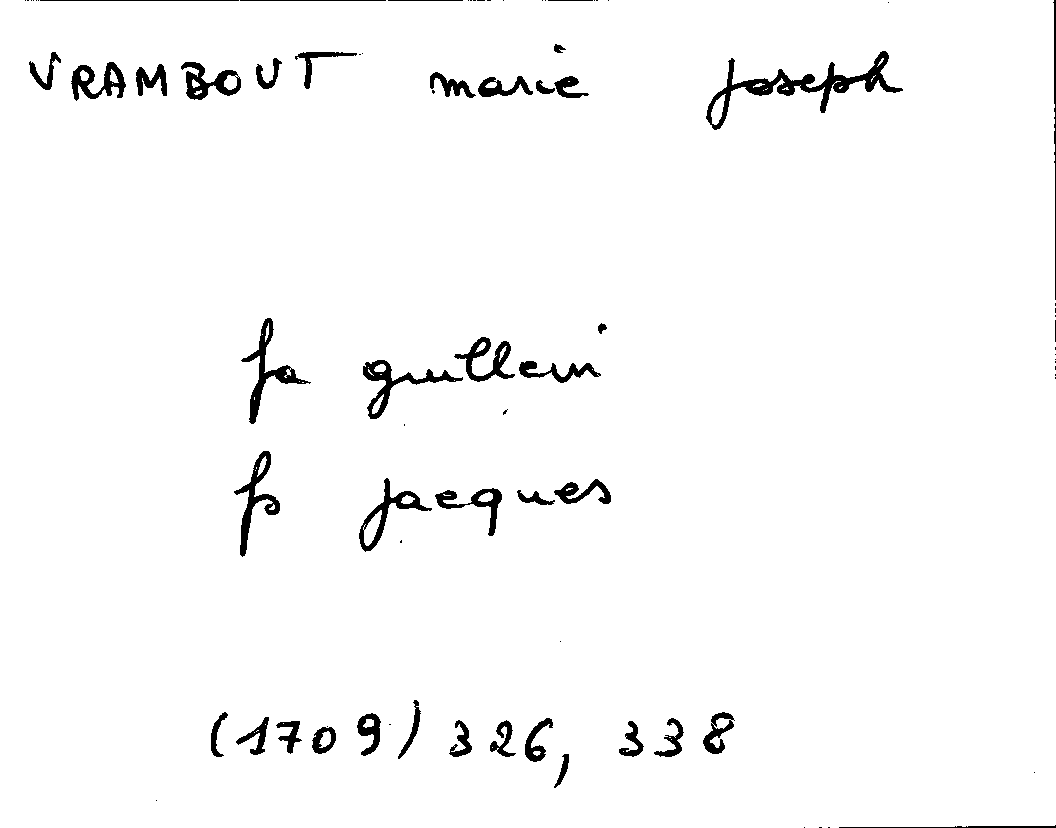 VRAMBOUT marie Joseph
fa guillem
fs Jacques
(1709) 326, 338